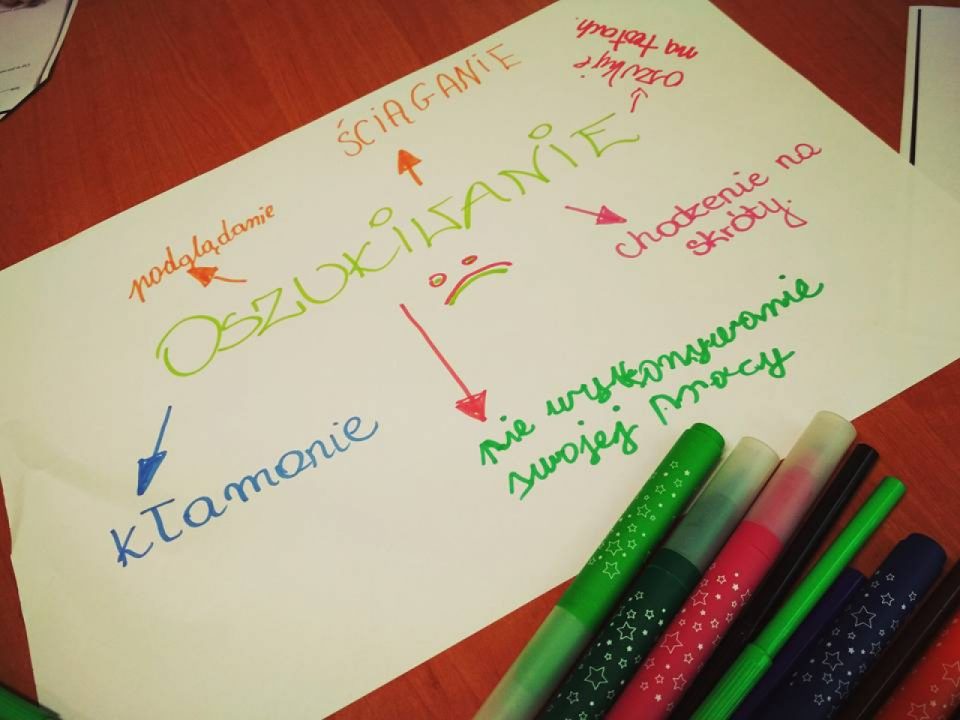 ŚCIĄGANIE
oszukuje
na testach.
podglądanie
OSZUKIWANIE
chodzenie na
skróty.
nie wykonywanie
swojej pracy
kłamanie